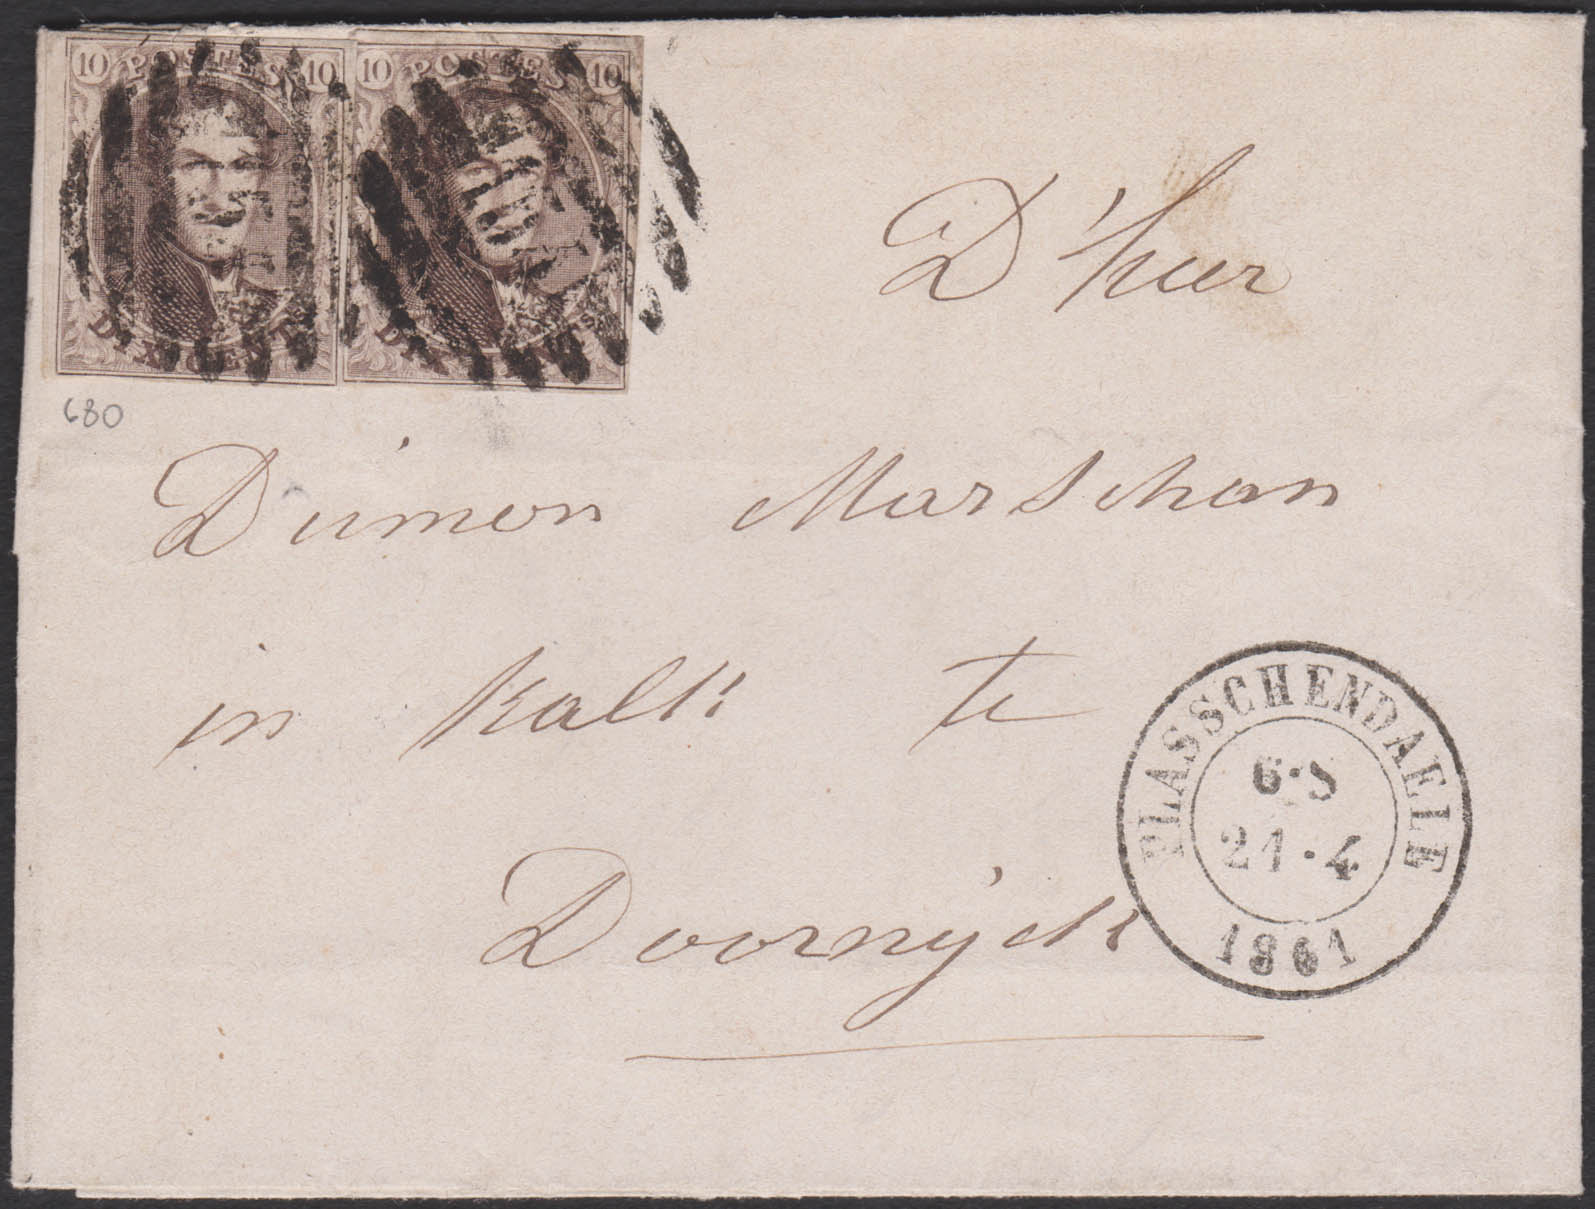 10 POSTES 10
DIX CENTS
10 POSTES 10
DIX CENTS
680
D'heer
Dumon Marschan
in kalk te
Doornijck
PLASSCHENDAELE
6·S
21·4
1861